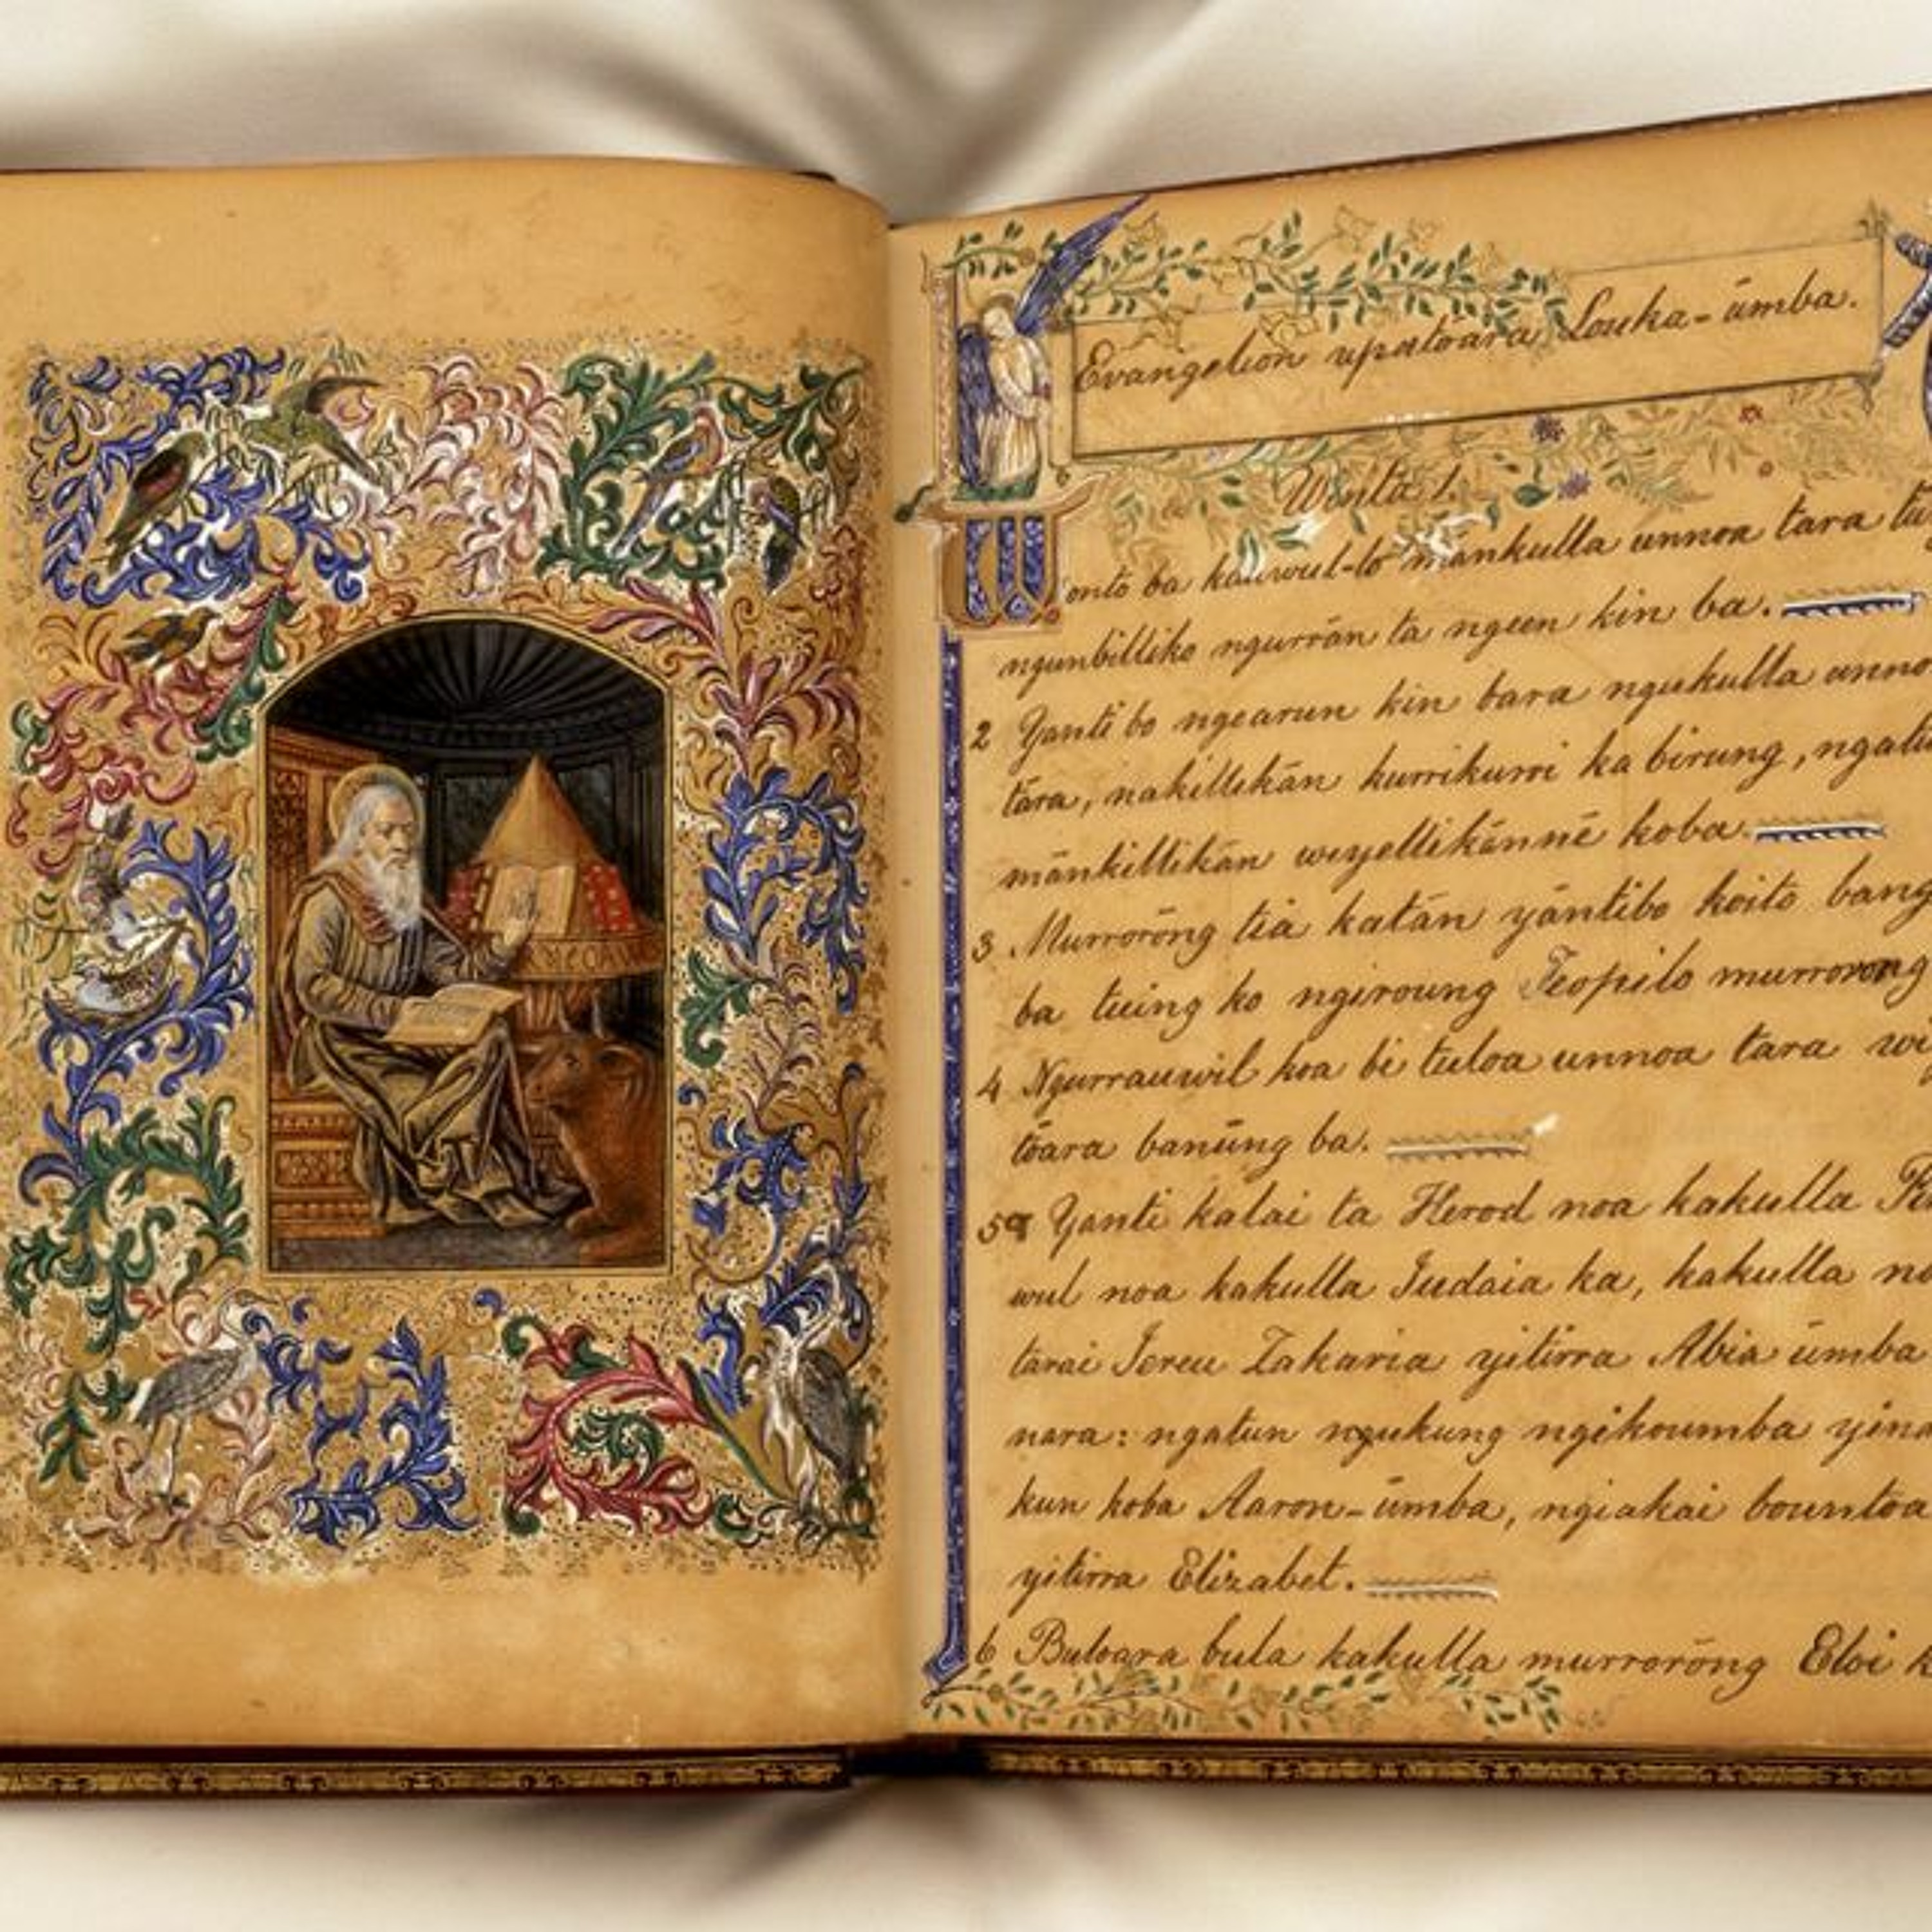 Evangelion upatōara Louka-ūmba.
Winta 1.
Wonto ba kauwul-lo mānkulla unnoa tara
ngunbilliko ngurrān ta ngeen kin ba.
2 Yanti bo ngearun kin bara ngukulla
tāra, nakillikān kurrikurri ka birung,
mānkillikān wiyellikānnē koba.
3 . Murrorōng tia katān yāntibo koito
ba tuing ko ngiroung Teopilo murrorong
4 Ngurrauwil koa bi tuloa unnoa tara
tōara banūng ba.
5 Yanti kalai ta Herod noa kakulla
wul noa kakulla Iudaia ka, kakulla
tarai Iereu Zakaria yitirra Abia ūmba
nara: ngatun ngukung ngikoumba
kun koba Aaron-ūmba, ngiakai
yitirra Elizabet.
6 Buloara bula kakulla murrorōng Eloi